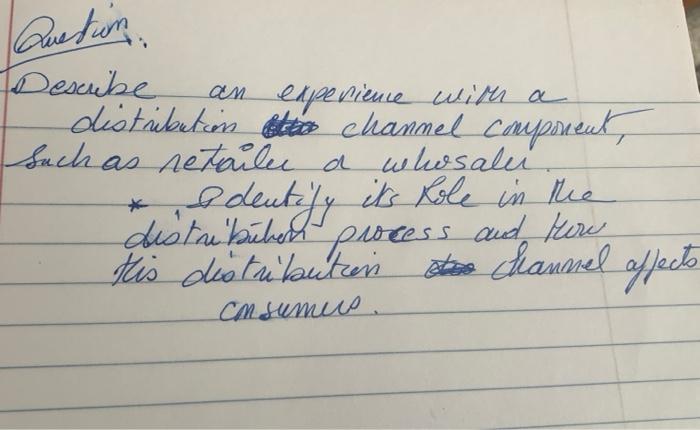 Question.
Describe an experience with a
distribution channel component,
Such as retailer or wholesaler.
* Identify its Role in the
distribution process and How
this distribution channel affects
consumers.